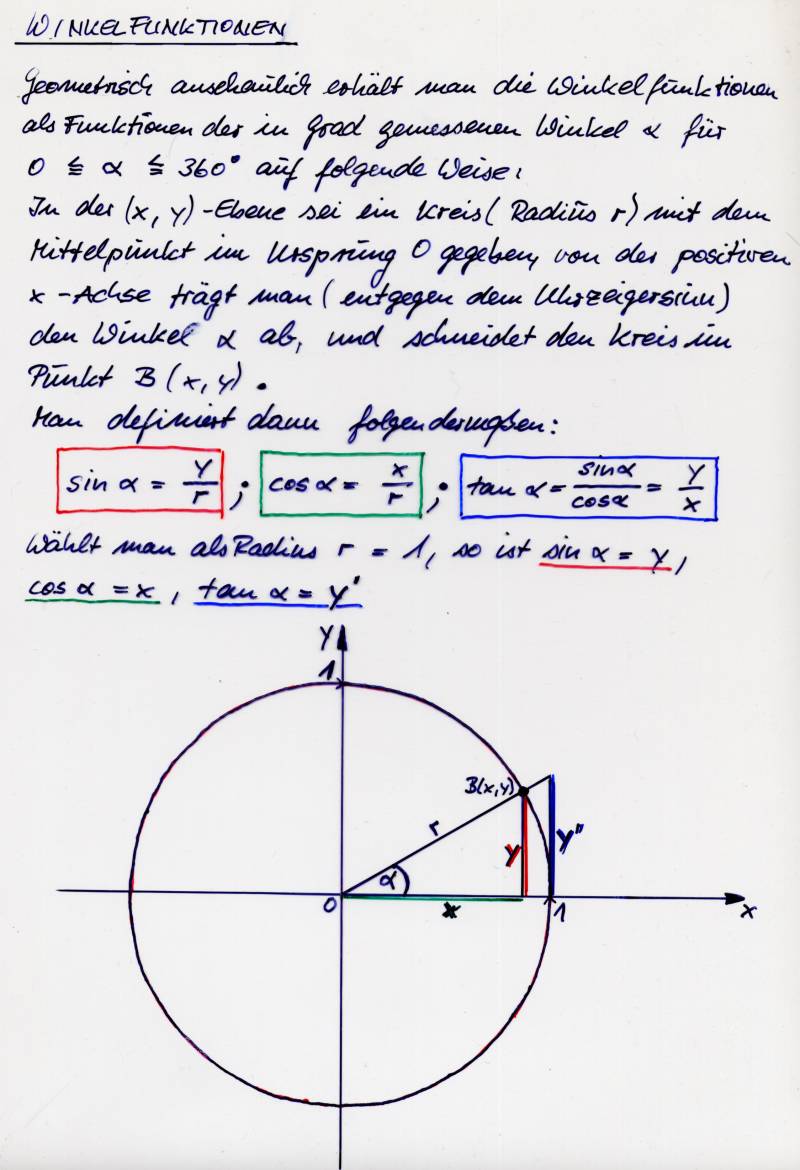 WINKELFUNKTIONEN
Geometrisch anschaulich erhält man die Winkelfunktionen
als Funktionen der in Grad gemessenen Winkel α für
0 ≦ α ≦ 360° auf folgende Weise:
In der (x, y)-Ebene sei ein Kreis (Radius r) mit dem
Mittelpunkt im Ursprung 0 gegeben, von der positiven
x-Achse trägt man (entgegen dem Uhrzeigersinn)
den Winkel α ab, und schneidet den Kreis im
Punkt B (x, y).
Man definiert dann folgendermaßen:
sin α = y/r ; cos α = x/r ; tan α = sin α/cos α = y/x
Wählt man als Radius r = 1, so ist sin α = y,
cos α = x, tan α = y'
y
1
B(x,y)
r
y
y"
α
0
x
1
x